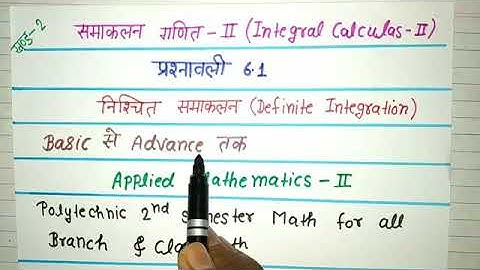 खण्ड-2
समाकलन गणित - II (Integral Calculas-II)
प्रश्नावली 6.1
निश्चित समाकलन (Definite Integration)
Basic से Advance तक
Applied Mathematics - II
Polytechnic 2nd Semester Math for all
Branch &